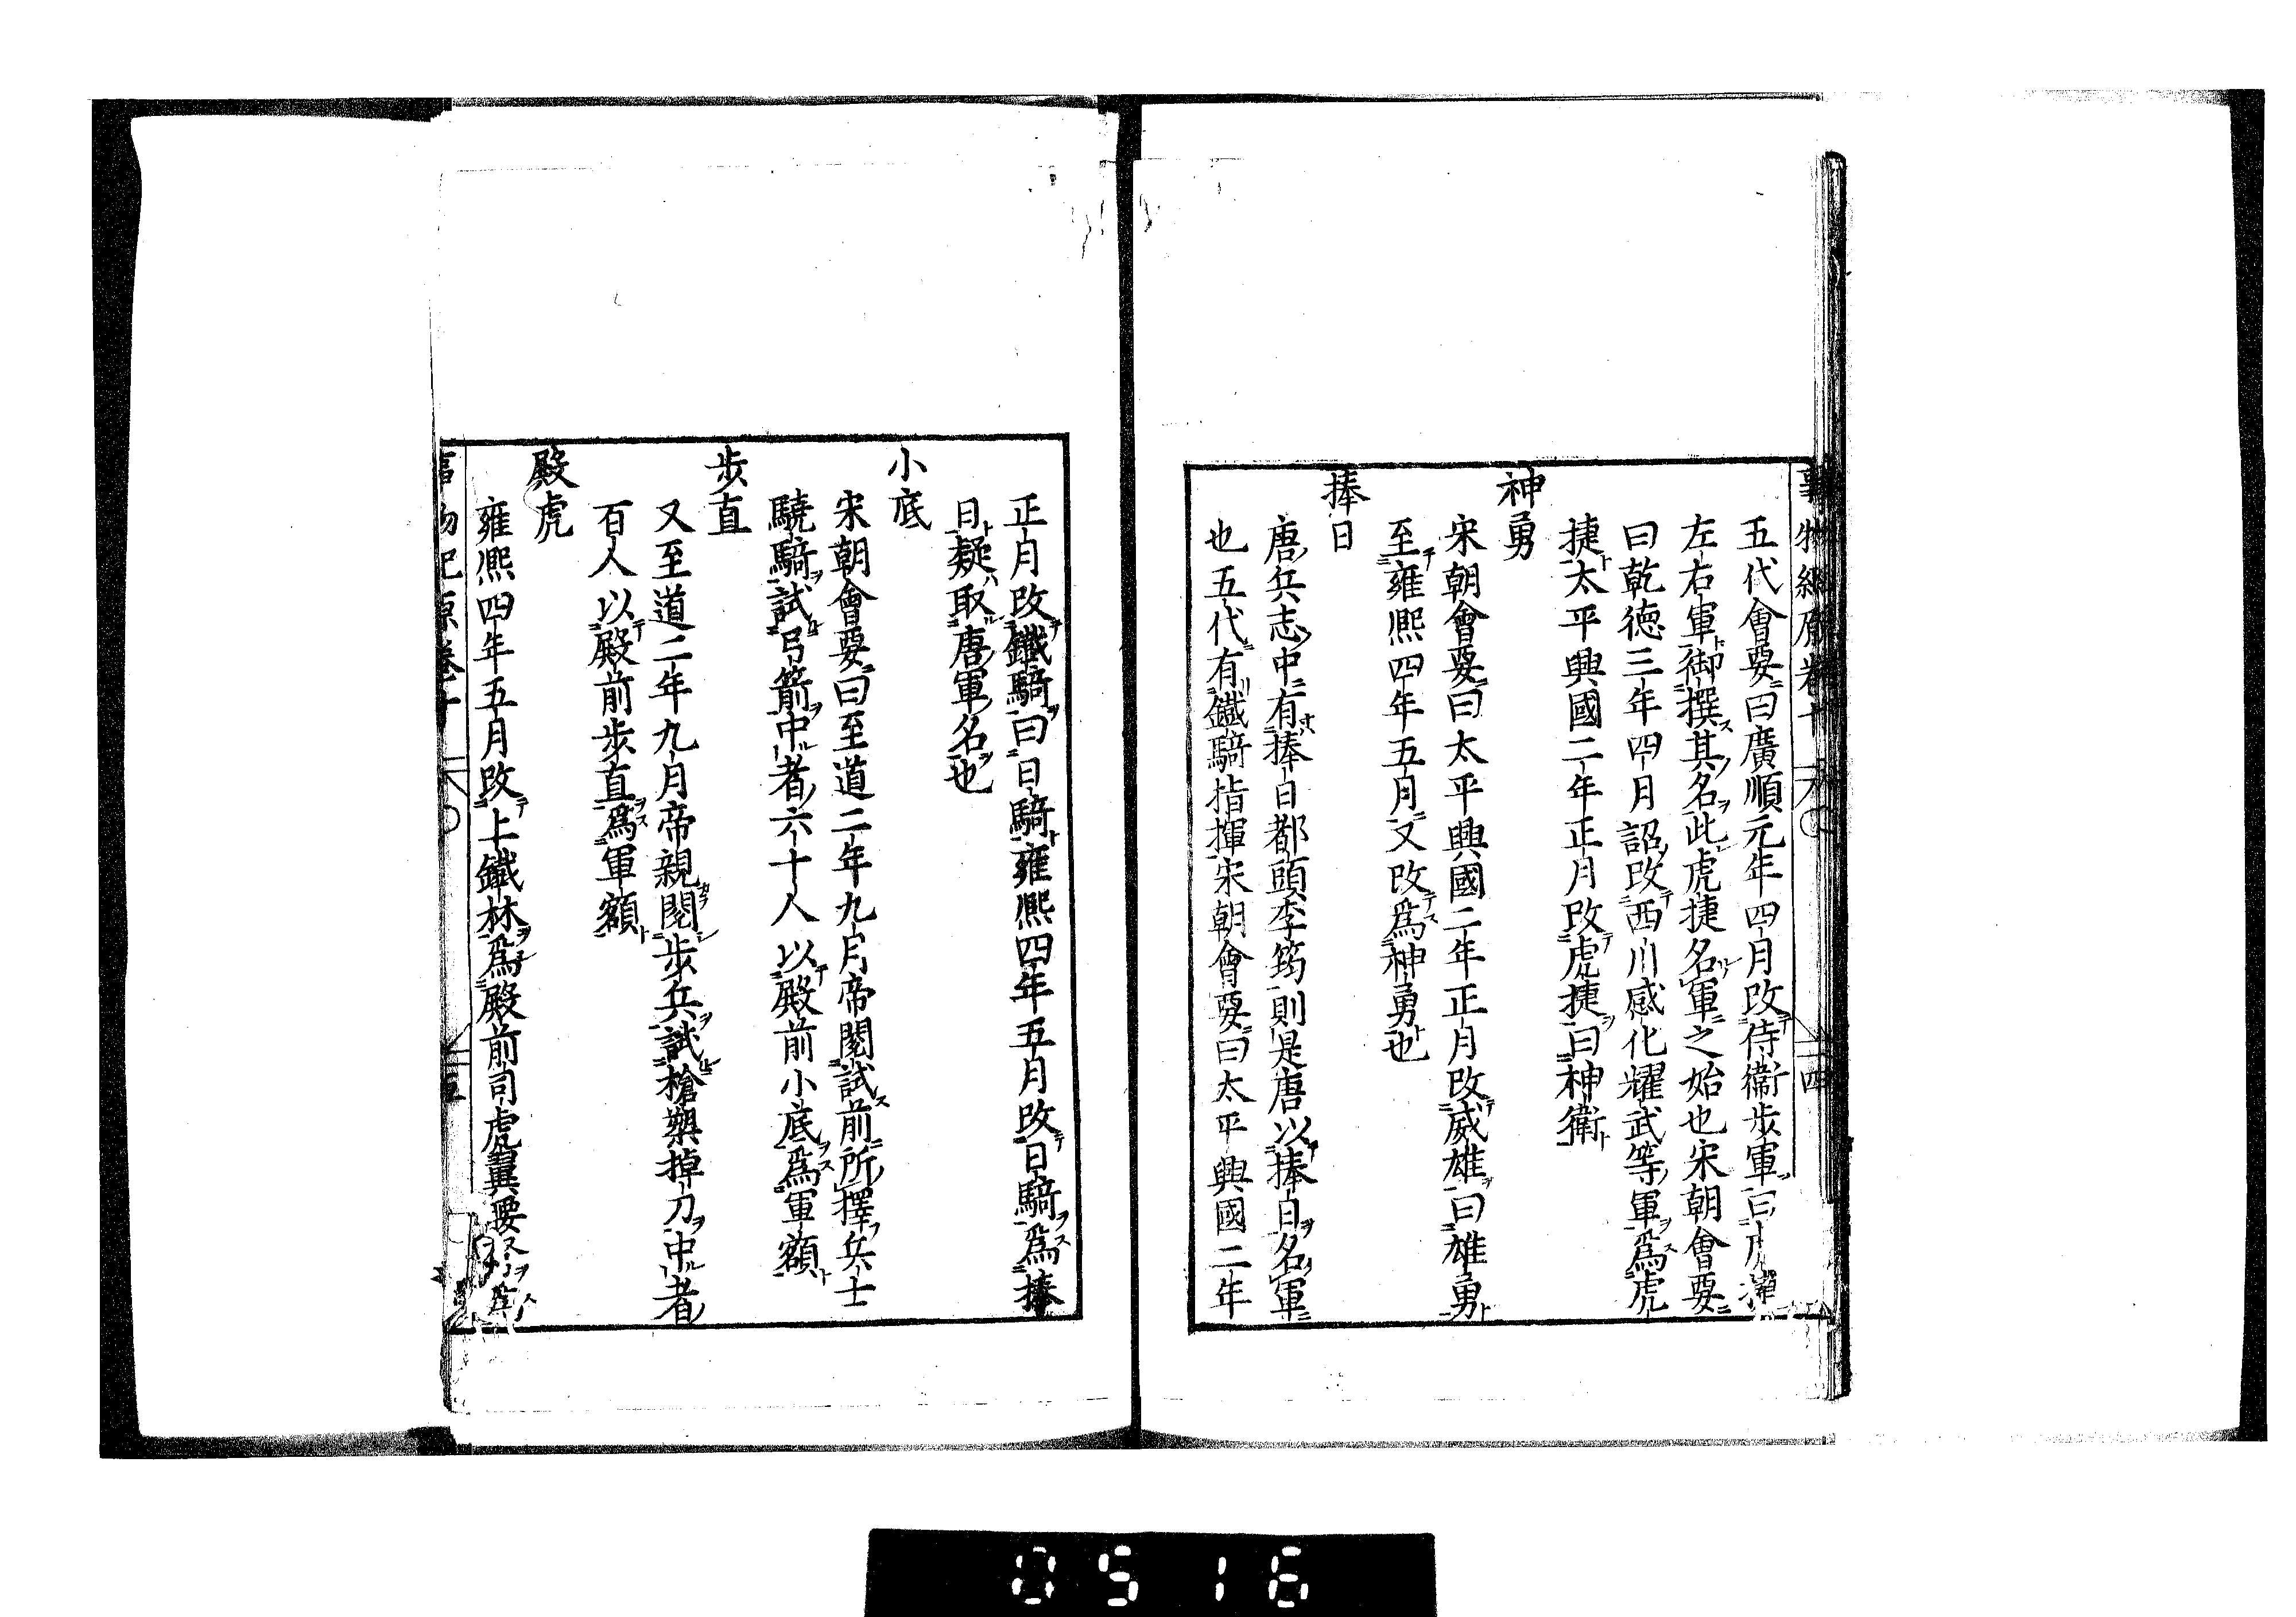 事物紀原卷十 四
五代會要曰廣順元年四月改侍衞步軍曰虎捷
左右軍御撰其名此虎捷名軍之始也宋朝會要
曰乾德三年四月詔改西川感化耀武等軍爲虎
捷太平興國二年正月改虎捷曰神衞
神勇
宋朝會要曰太平興國二年正月改威雄曰雄勇
至雍熙四年五月又改爲神勇也
捧日
唐兵志中有捧日都頭李筠則是唐以捧日名軍
也五代有鐵騎指揮宋朝會要曰太平興國二年
正月改鐵騎曰日騎雍熙四年五月改日騎爲捧
日疑取唐軍名也
小底
宋朝會要曰至道二年九月帝閱試前所擇兵士
驍騎試弓箭中者六十人以殿前小底爲軍額
步直
又至道二年九月帝親閱步兵試槍槊掉刀中者
百人以殿前步直爲軍額
殿虎
雍熙四年五月改上鐵林爲殿前司虎翼要
事物紀原卷十 五
0516